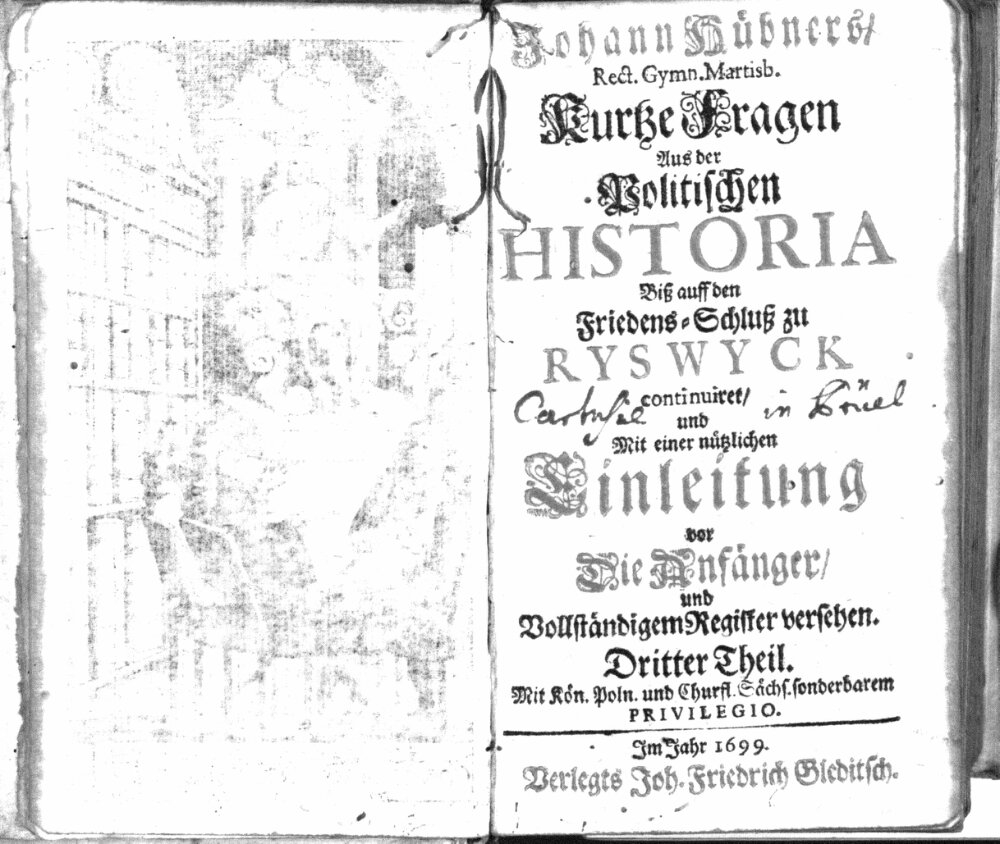 Johann Hübners/
Rect. Gymn. Martisb.
Kurtze Fragen
Aus der
Politischen
HISTORIA
Biß auff den
Friedens-Schluß zu
RYSWYCK
continuiret/
in Brüel
und
Mit einer nützlichen
Einleitung
vor
Die Anfänger/
und
Vollständigem Register versehen.
Dritter Theil.
Mit Kön. Poln. und Churfl. Sächs. sonderbarem
PRIVILEGIO.
Im Jahr 1699.
Verlegts Joh. Friedrich Gleditsch.